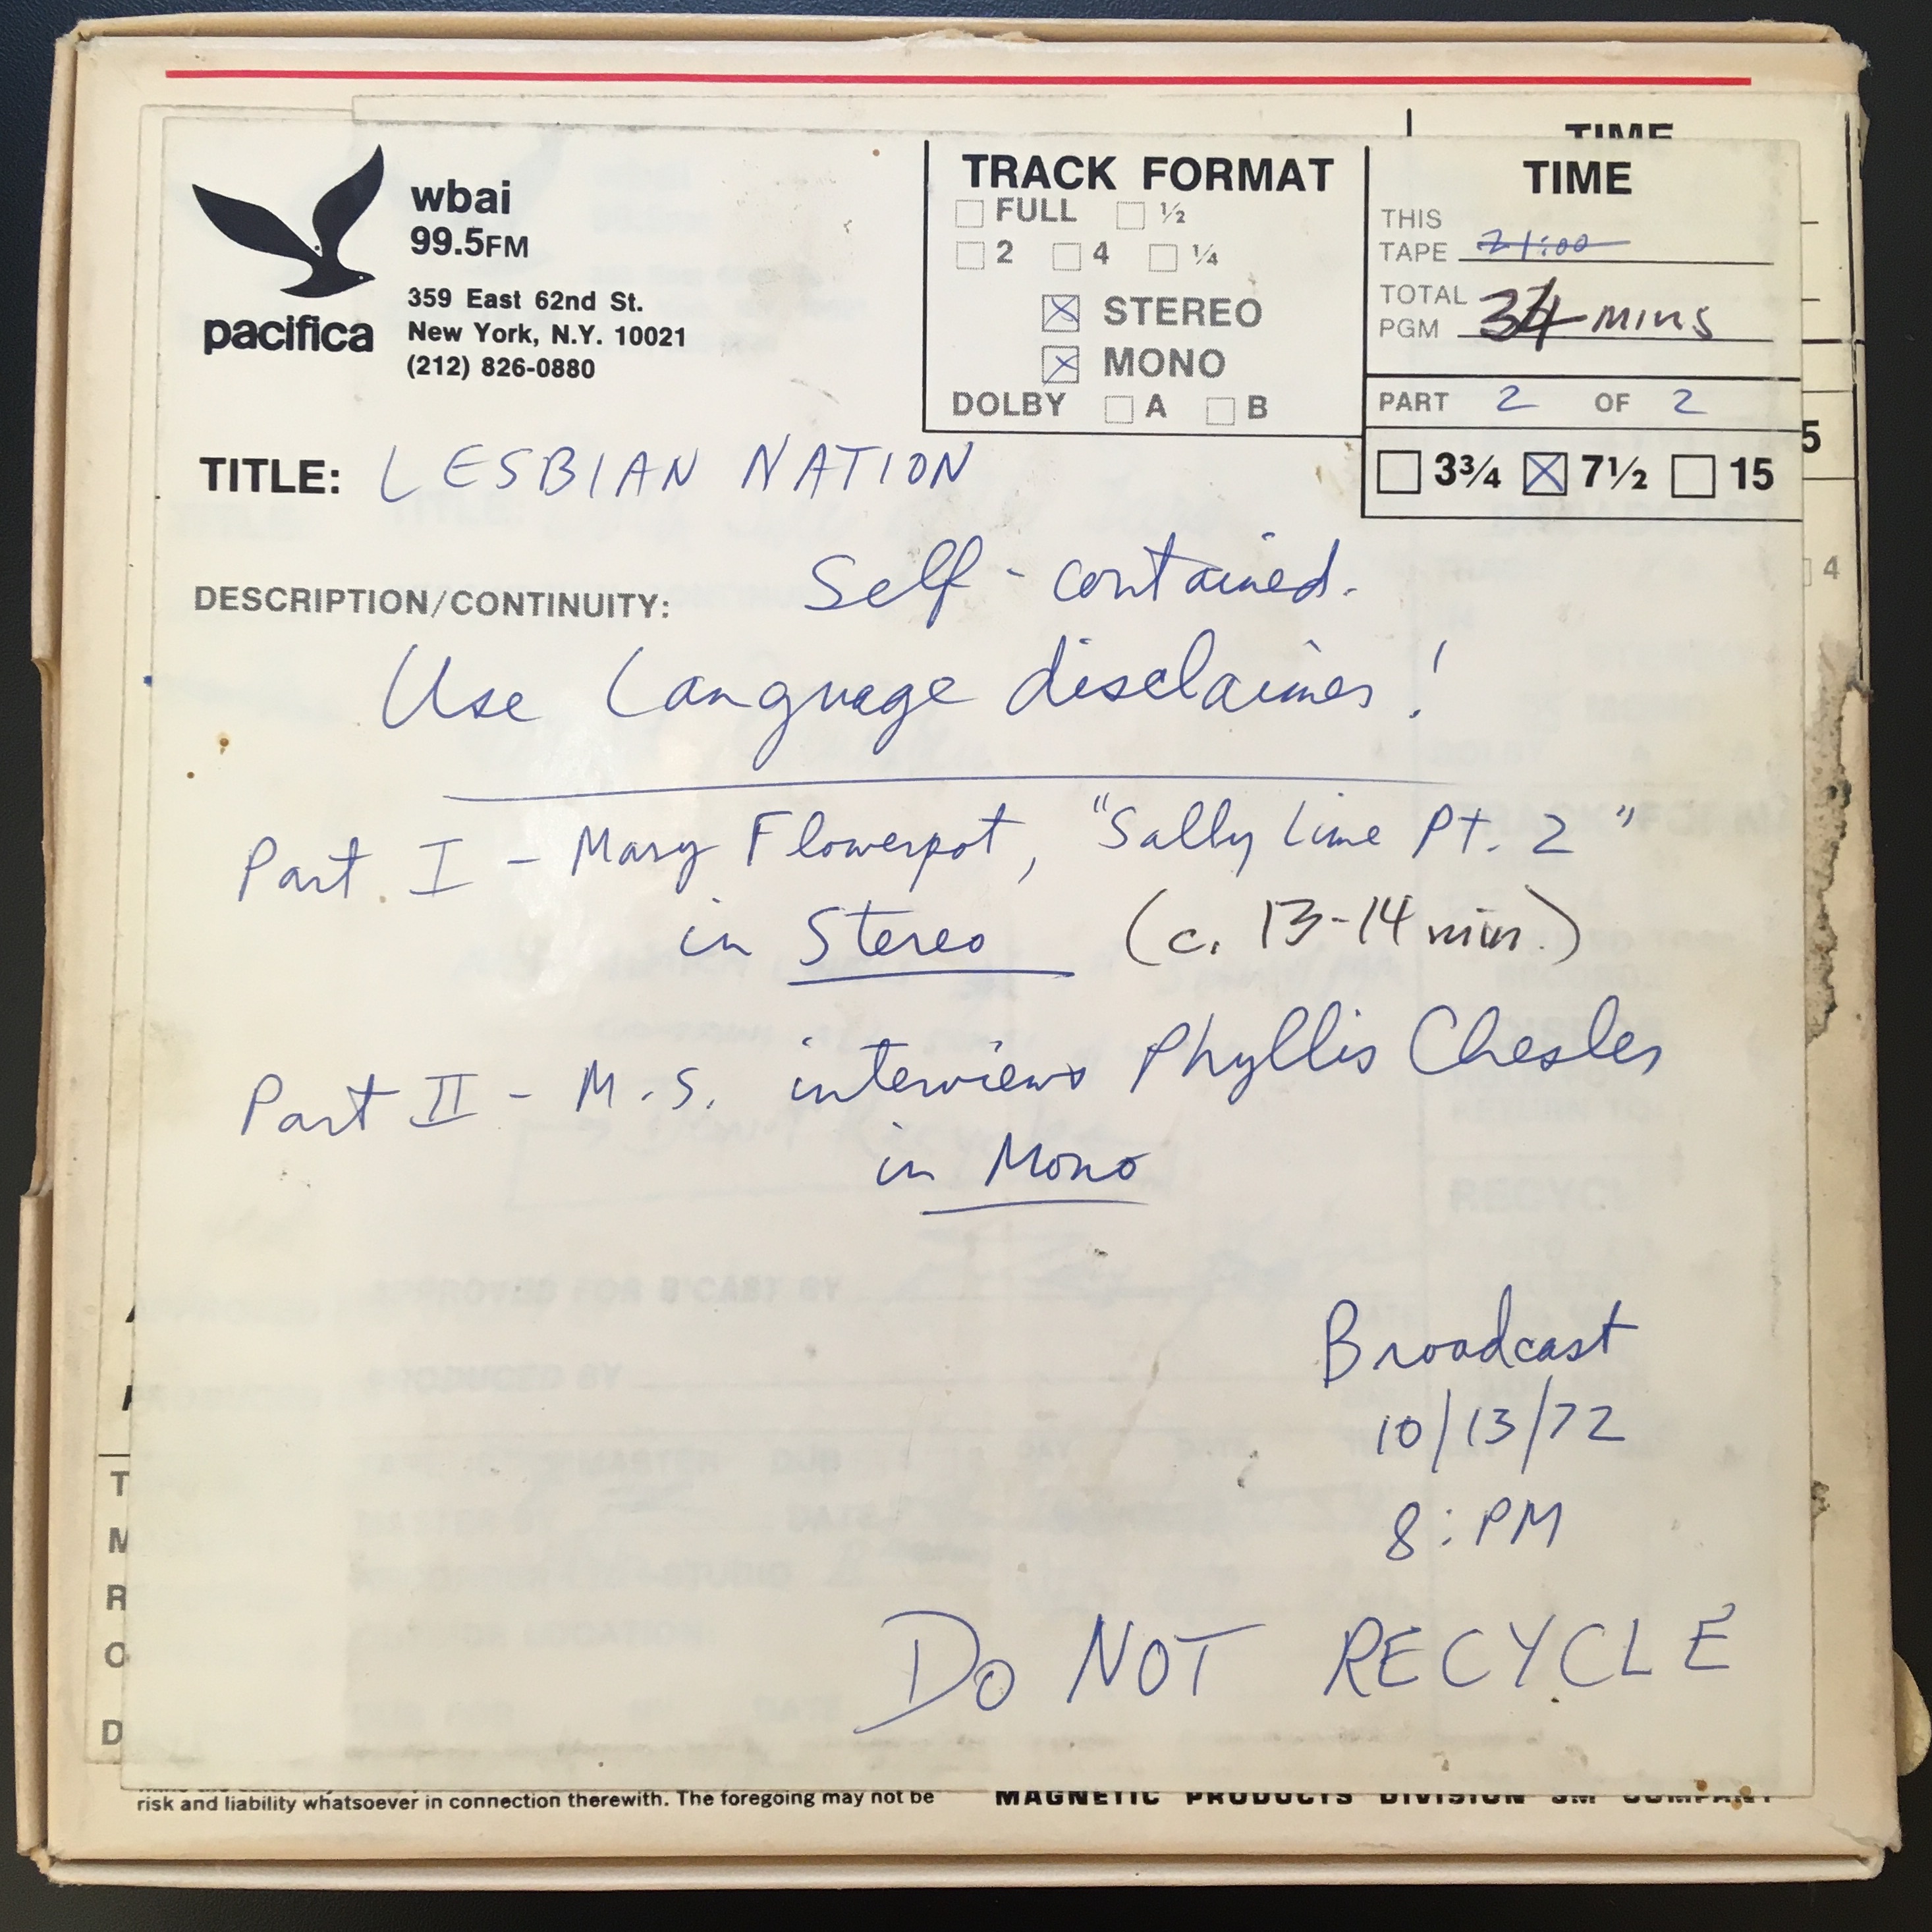 TIME
wbai
99.5FM
359 East 62nd St.
New York, N.Y. 10021
(212) 826-0880
pacifica
TRACK FORMAT
FULL ½
2 4 ¼
STEREO
MONO
DOLBY A B
TIME
THIS
TAPE 21:00
TOTAL
PGM 34 mins
PART 2 OF 2
3¾ 7½ 15
5
4
TITLE: LESBIAN NATION
DESCRIPTION/CONTINUITY: Self-contained.
Use Language disclaimer!
Part I - Mary Flowerpot, "Sally Lime Pt. 2"
in Stereo (c. 13-14 min.)
Part II - M.S. interviews Phyllis Chesler
in Mono
APPROVED FOR B'CAST BY
PRODUCED BY
Broadcast
10/13/72
8:PM
DO NOT RECYCLE
T
M
R
O
D
risk and liability whatsoever in connection therewith. The foregoing may not be
MAGNETIC PRODUCTS DIVISION 3M COMPANY